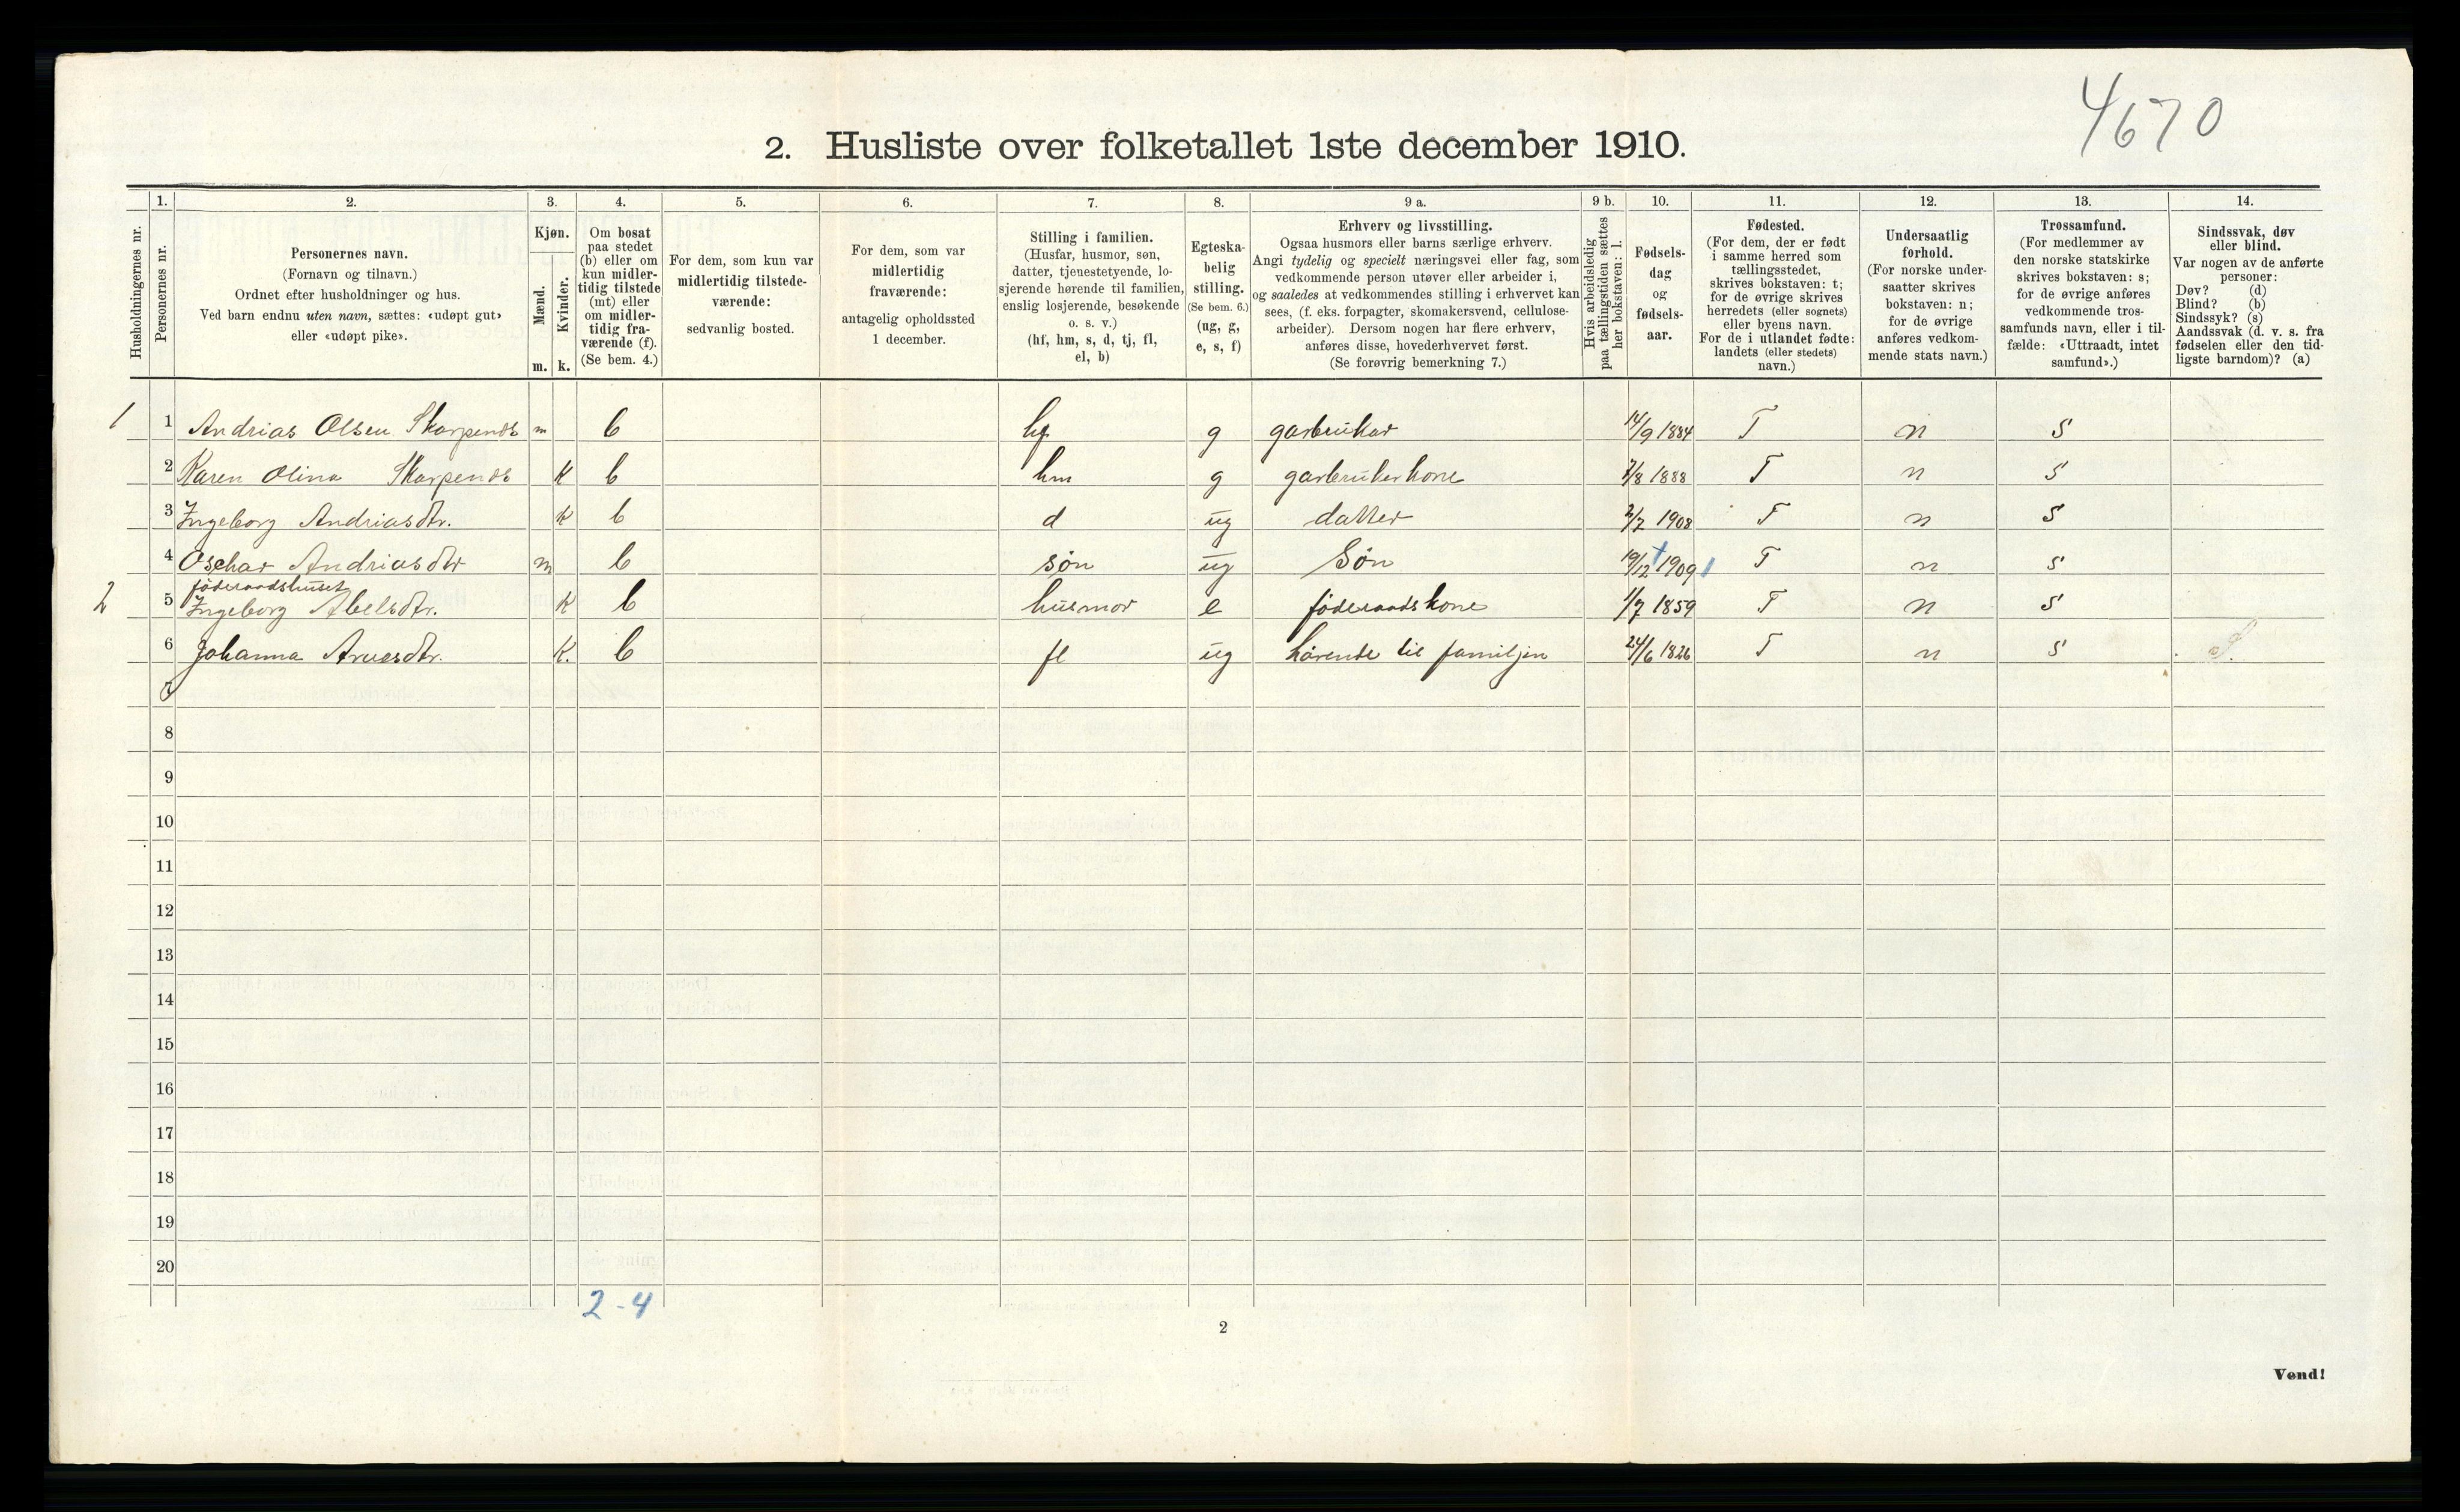 4670
2. Husliste over folketallet 1ste december 1910.
Husholdningernes nr.
1.
Personernes nr.
2.
Personernes navn.
(Fornavn og tilnavn.)
Ordnet efter husholdninger og hus.
Ved barn endnu uten navn, sættes: «udøpt gut»
eller «udøpt pike».
3.
Kjøn.
Mænd.
Kvinder.
m. k.
4.
Om bosat
paa stedet
(b) eller om
kun midler-
tidig tilstede
(mt) eller
om midler-
tidig fra-
værende (f).
(Se bem. 4.)
5.
For dem, som kun var
midlertidig tilstede-
værende:
sedvanlig bosted.
6.
For dem, som var
midlertidig
fraværende:
antagelig opholdssted
1 december.
7.
Stilling i familien.
(Husfar, husmor, søn,
datter, tjenestetyende, lo-
sjerende hørende til familien,
enslig losjerende, besøkende
o. s. v.)
(hf, hm, s, d, tj, fl,
el, b)
8.
Egteska-
belig
stilling.
(Se bem. 6.)
(ug, g,
e, s, f)
9 a.
Erhverv og livsstilling.
Ogsaa husmors eller barns særlige erhverv.
Angi tydelig og specielt næringsvei eller fag, som
vedkommende person utøver eller arbeider i,
og saaledes at vedkommendes stilling i erhvervet kan
sees, (f. eks. forpagter, skomakersvend, cellulose-
arbeider). Dersom nogen har flere erhverv,
anføres disse, hovederhvervet først.
(Se forøvrig bemerkning 7.)
9 b.
Hvis arbeidsledig
paa tællingstiden sættes
her bokstaven: l.
10.
Fødsels-
dag
og
fødsels-
aar.
11.
Fødested.
(For dem, der er født
i samme herred som
tællingsstedet,
skrives bokstaven: t;
for de øvrige skrives
herredets (eller sognets)
eller byens navn.
For de i utlandet fødte:
landets (eller stedets)
navn.)
12.
Undersaatlig
forhold.
(For norske under-
saatter skrives
bokstaven: n;
for de øvrige
anføres vedkom-
mende stats navn.)
13.
Trossamfund.
(For medlemmer av
den norske statskirke
skrives bokstaven: s;
for de øvrige anføres
vedkommende tros-
samfunds navn, eller i til-
fælde: «Uttraadt, intet
samfund».)
14.
Sindssvak, døv
eller blind.
Var nogen av de anførte
personer:
Døv? (d)
Blind? (b)
Sindssyk? (s)
Aandssvak (d. v. s. fra
fødselen eller den tid-
ligste barndom)? (a)
1 1 Andrias Olsen Skarpends m b hf g garbrukar 14/9 1884 T n S
2 Karen Olina Skarpends K b hm g garbrukerkone 7/8 1888 T n S
3 Ingeborg Andriasdtr. K b d ug datter 2/2 1908 T n S
4 Oschar Andriasdtr m b søn ug Søn 19/12 1909 T n S
föderaadshuset
2 5 Ingeborg Abelsdtr. K b husmor e föderaadskone 1/7 1859 T n S
6 Johanna Arnesdtr. K. b fl ug hørende til familjen 24/6 1826 T n S
7
8
9
10
11
12
13
14
15
16
17
18
19
20
2-4
2
Vend!